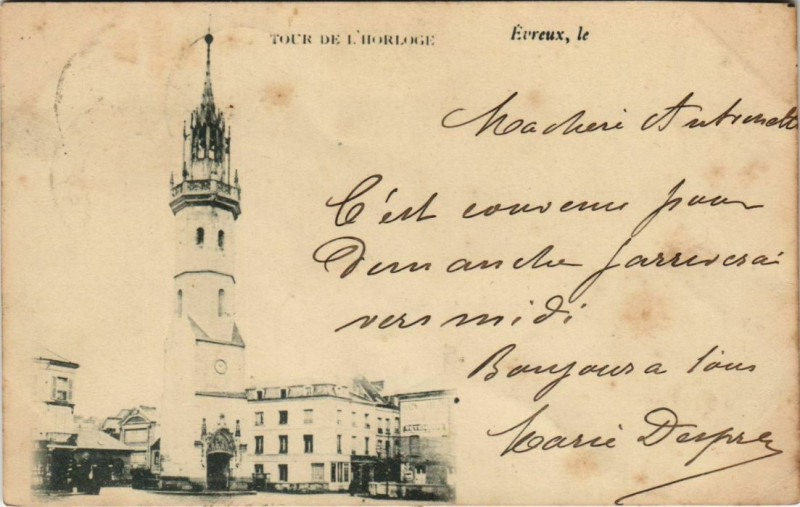 TOUR DE L'HORLOGE
Évreux, le
Ma cheri Antoinette
C'est convenu pour
Dimanche j'arriverai
vers midi
Bonjour a tous
Marie Desprez